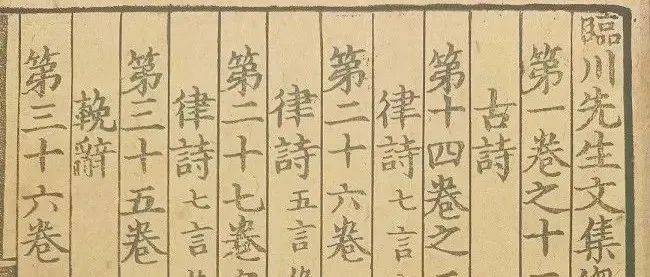 臨川先生文集
第一卷之十
古詩
第十四卷之
律詩 七言
第二十六卷
律詩 五言
第二十七卷
律詩 七言
第三十五卷
輓辭
第三十六卷